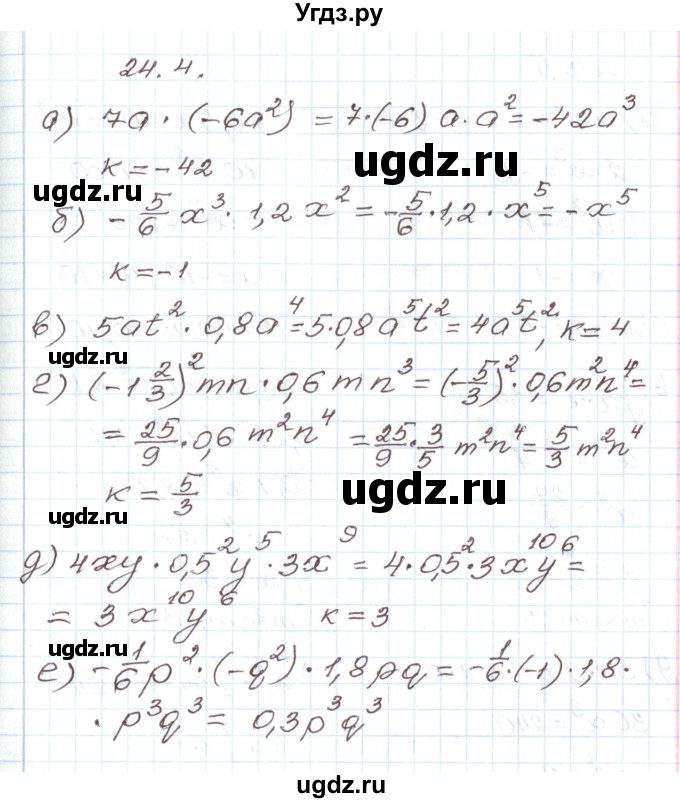 Угдз.ру
24.4.
а) 7a · (-6a²) = 7·(-6) a·a² = -42a³
k = -42
ugdz.ru
ugdz.ru
б) -5/6 x³ · 1,2 x² = -5/6 · 1,2 · x⁵ = -x⁵
k = -1
в) 5at² · 0,8a⁴ = 5·0,8a⁵t² = 4a⁵t², k = 4
ugdz.ru
г) (-1 2/3)² mn · 0,6 mn³ = (-5/3)² · 0,6m²n⁴ =
= 25/9 · 0,6 m²n⁴ = 25/9 · 3/5 m²n⁴ = 5/3 m²n⁴
k = 5/3
ugdz.ru
ugdz.ru
д) 4xy · 0,5² y⁵ · 3x⁹ = 4·0,5²·3 x¹⁰y⁶ =
= 3x¹⁰y⁶ k = 3
ugdz.ru
е) -1/6 p² · (-q²) · 1,8pq = -1/6 · (-1) · 1,8 ·
· p³q³ = 0,3p³q³
ugdz.ru
ugdz.ru